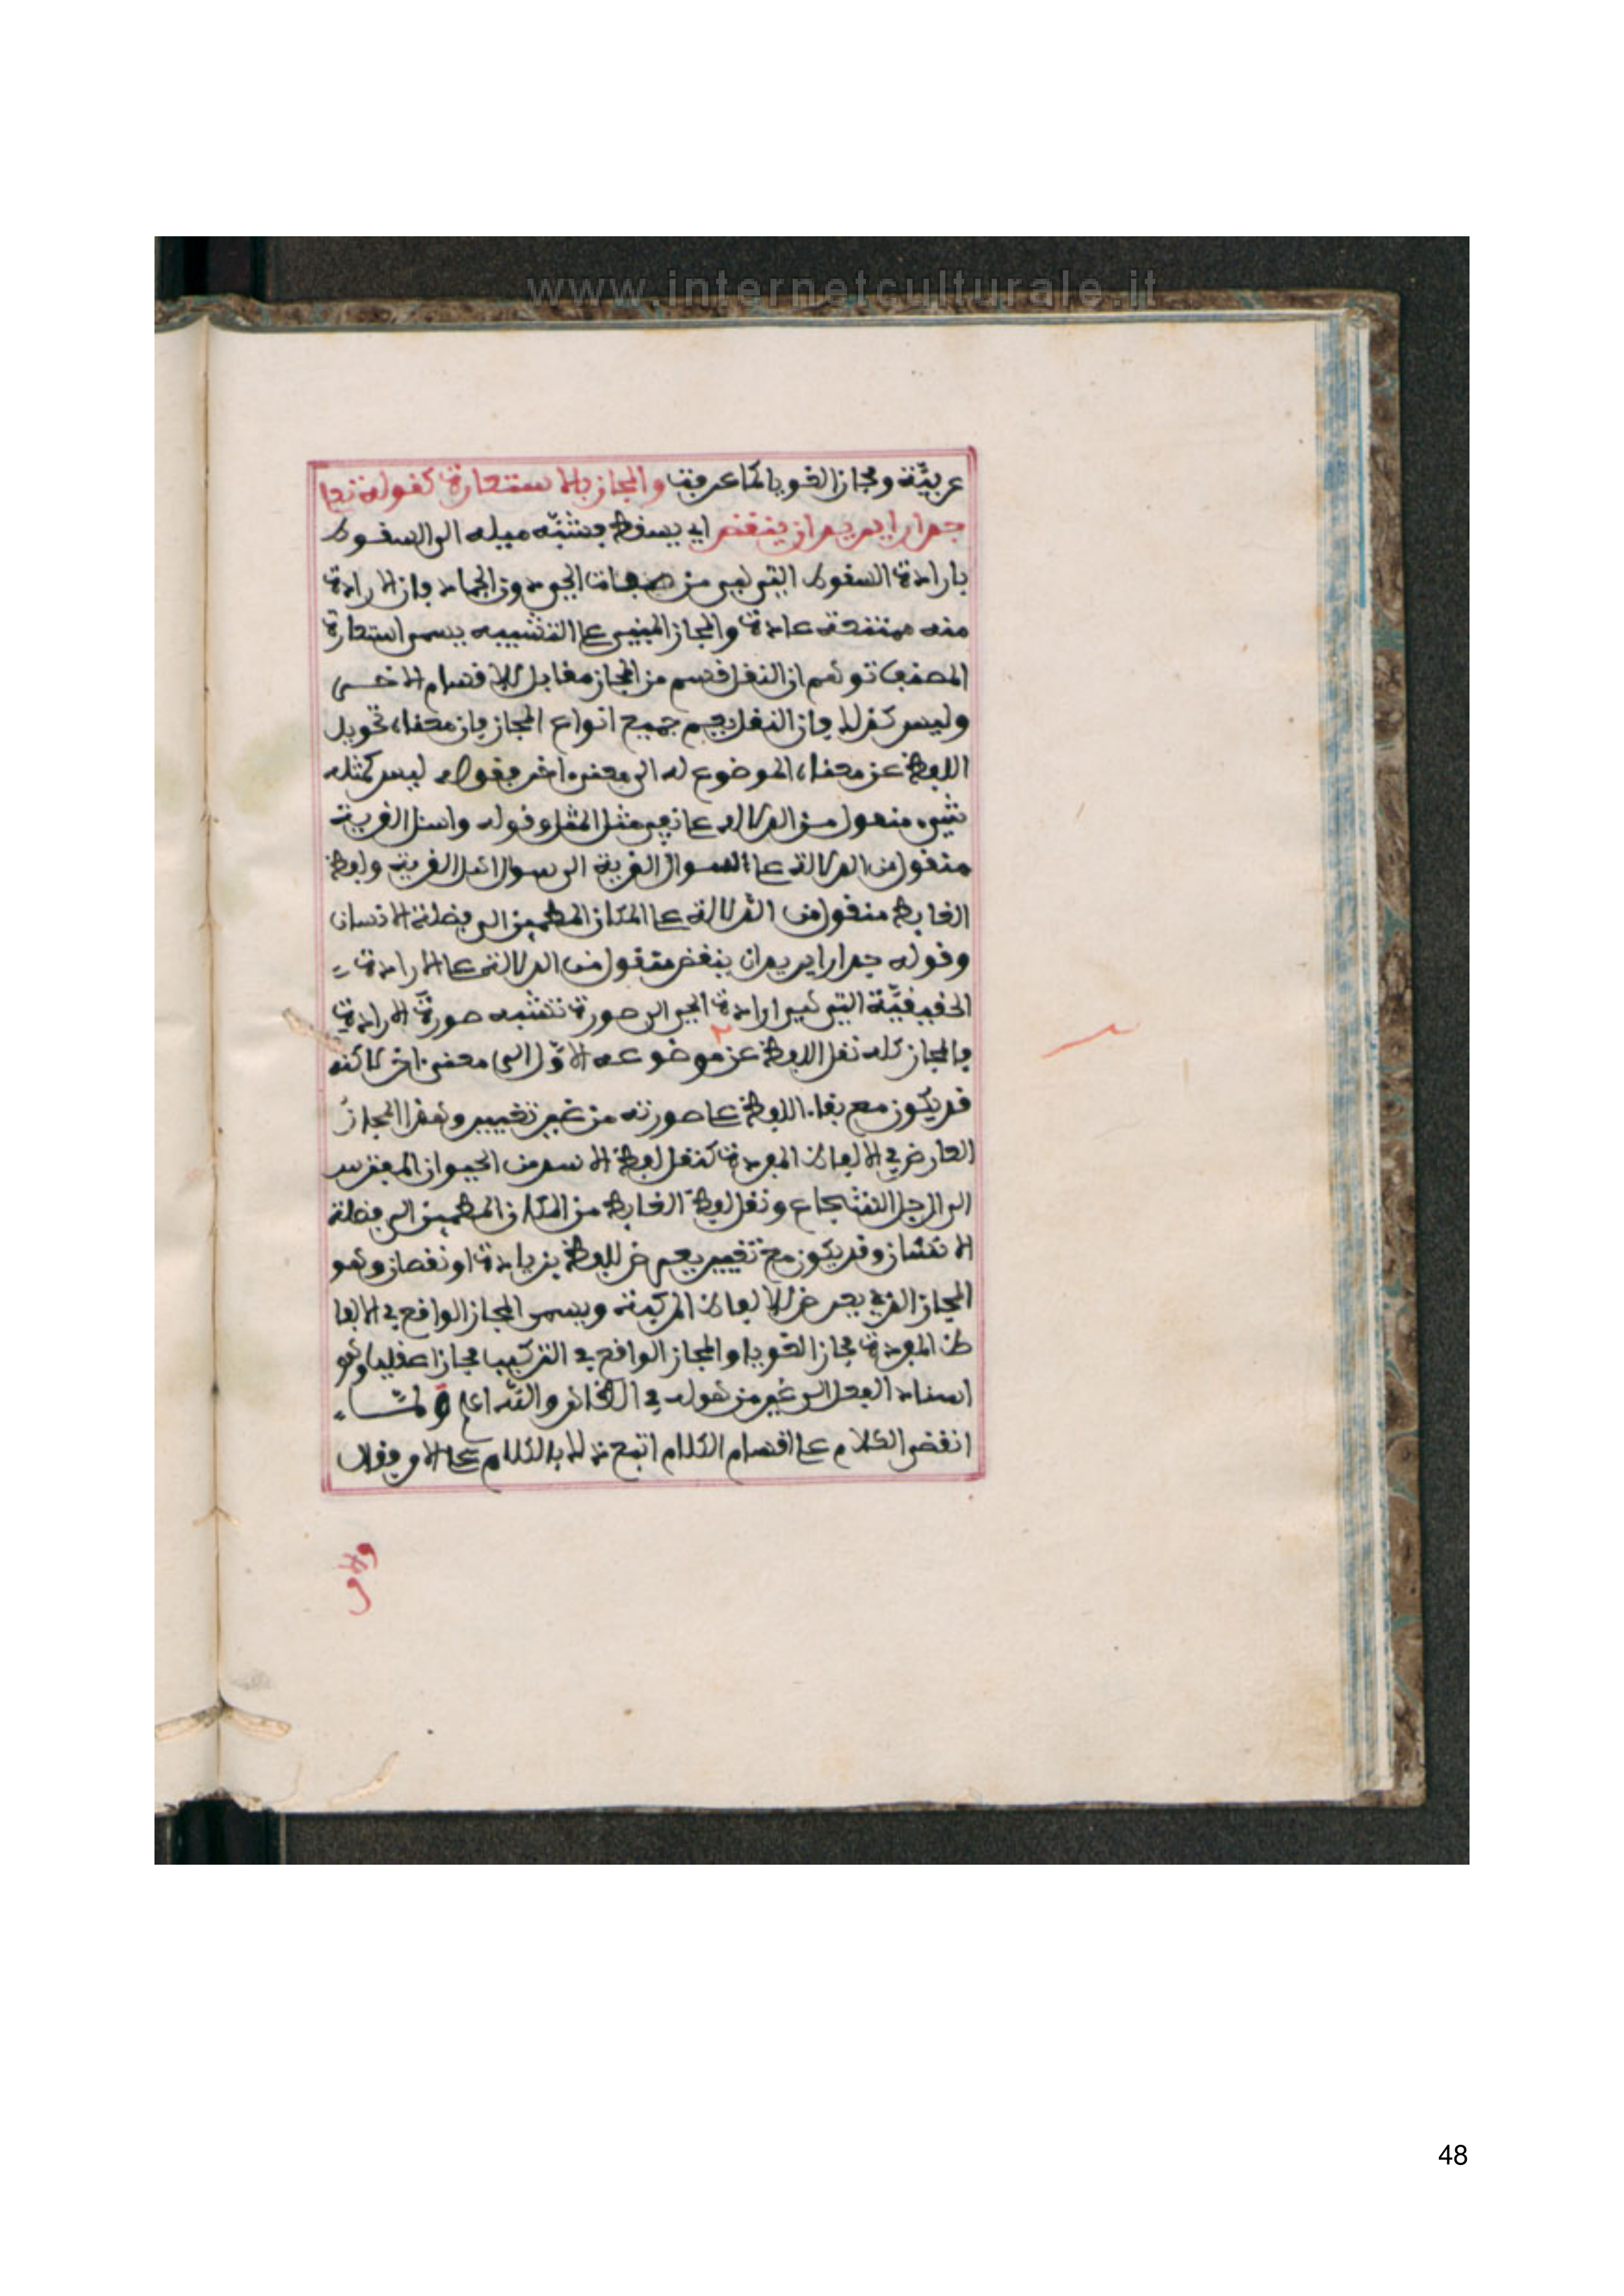 www.internetculturale.it
عربيّة ومجاز لغويا كما عرفت والمجاز بالاستعارة كقوله تعا
جدارا يريد ان ينقض اي يسقط فشبّه ميله الى السقوط
بارادة السقوط التي هي من صفات الحي دون الجماد فان الارادة
منه ممتنعة عادة والمجاز المبني على التشبيه يسمى استعارة
المصنف توهم ان النقل قسم من المجاز مقابل للاقسام الاخــر
وليس كذلك فان النقل يعم جميع انواع المجاز فان معناه تحويل
اللفظ عن معناه الموضوع له الى معنى اخر فقوله ليس كمثله
شيء منقول من الدلالة على نفي مثل المثل وقوله واسئل القرية
منقول من الدلالة على السوال القرية الى سوال اهل القرية ولفظ
الغايط منقول من الدلالة على المكان المطمين الى فضلة الانسان
وقوله جدارا يريد ان ينقض منقول من الدلالة على الارادة
الحقيقيّة التي هي ارادة الحي الى صورة تشبه صورة الارادة
فالمجاز كله نقل اللفظ عن موضوعه الاوّل الى معنى اخر لاكنه
قد يكون مع بقاء اللفظ على صورته من غير تغيير وهذا المجاز
العارض في الالفاظ المفردة كنقل لفظ الاسد من الحيوان المفترس
الى الرجل الشجاع ونقل لفظ الغايط من المكان المطمين الى فضلة
الانسان وقد يكون مع تغيير يعرض للفظ بزيادة او نقصان وهو
المجاز الذي يعرض للالفاظ المركبة ويسمى المجاز الواقع في الالفا
ظ المفردة مجاز لغويا والمجاز الواقع في التركيب مجازا عقليا وهو
اسناد الفعل الى غير من هو له في الظاهر والله اعلم ولمّــا
انقضى الكلام على اقسام الكلام اتبع ذلك بالكلام على الامر فقال
والامر
48